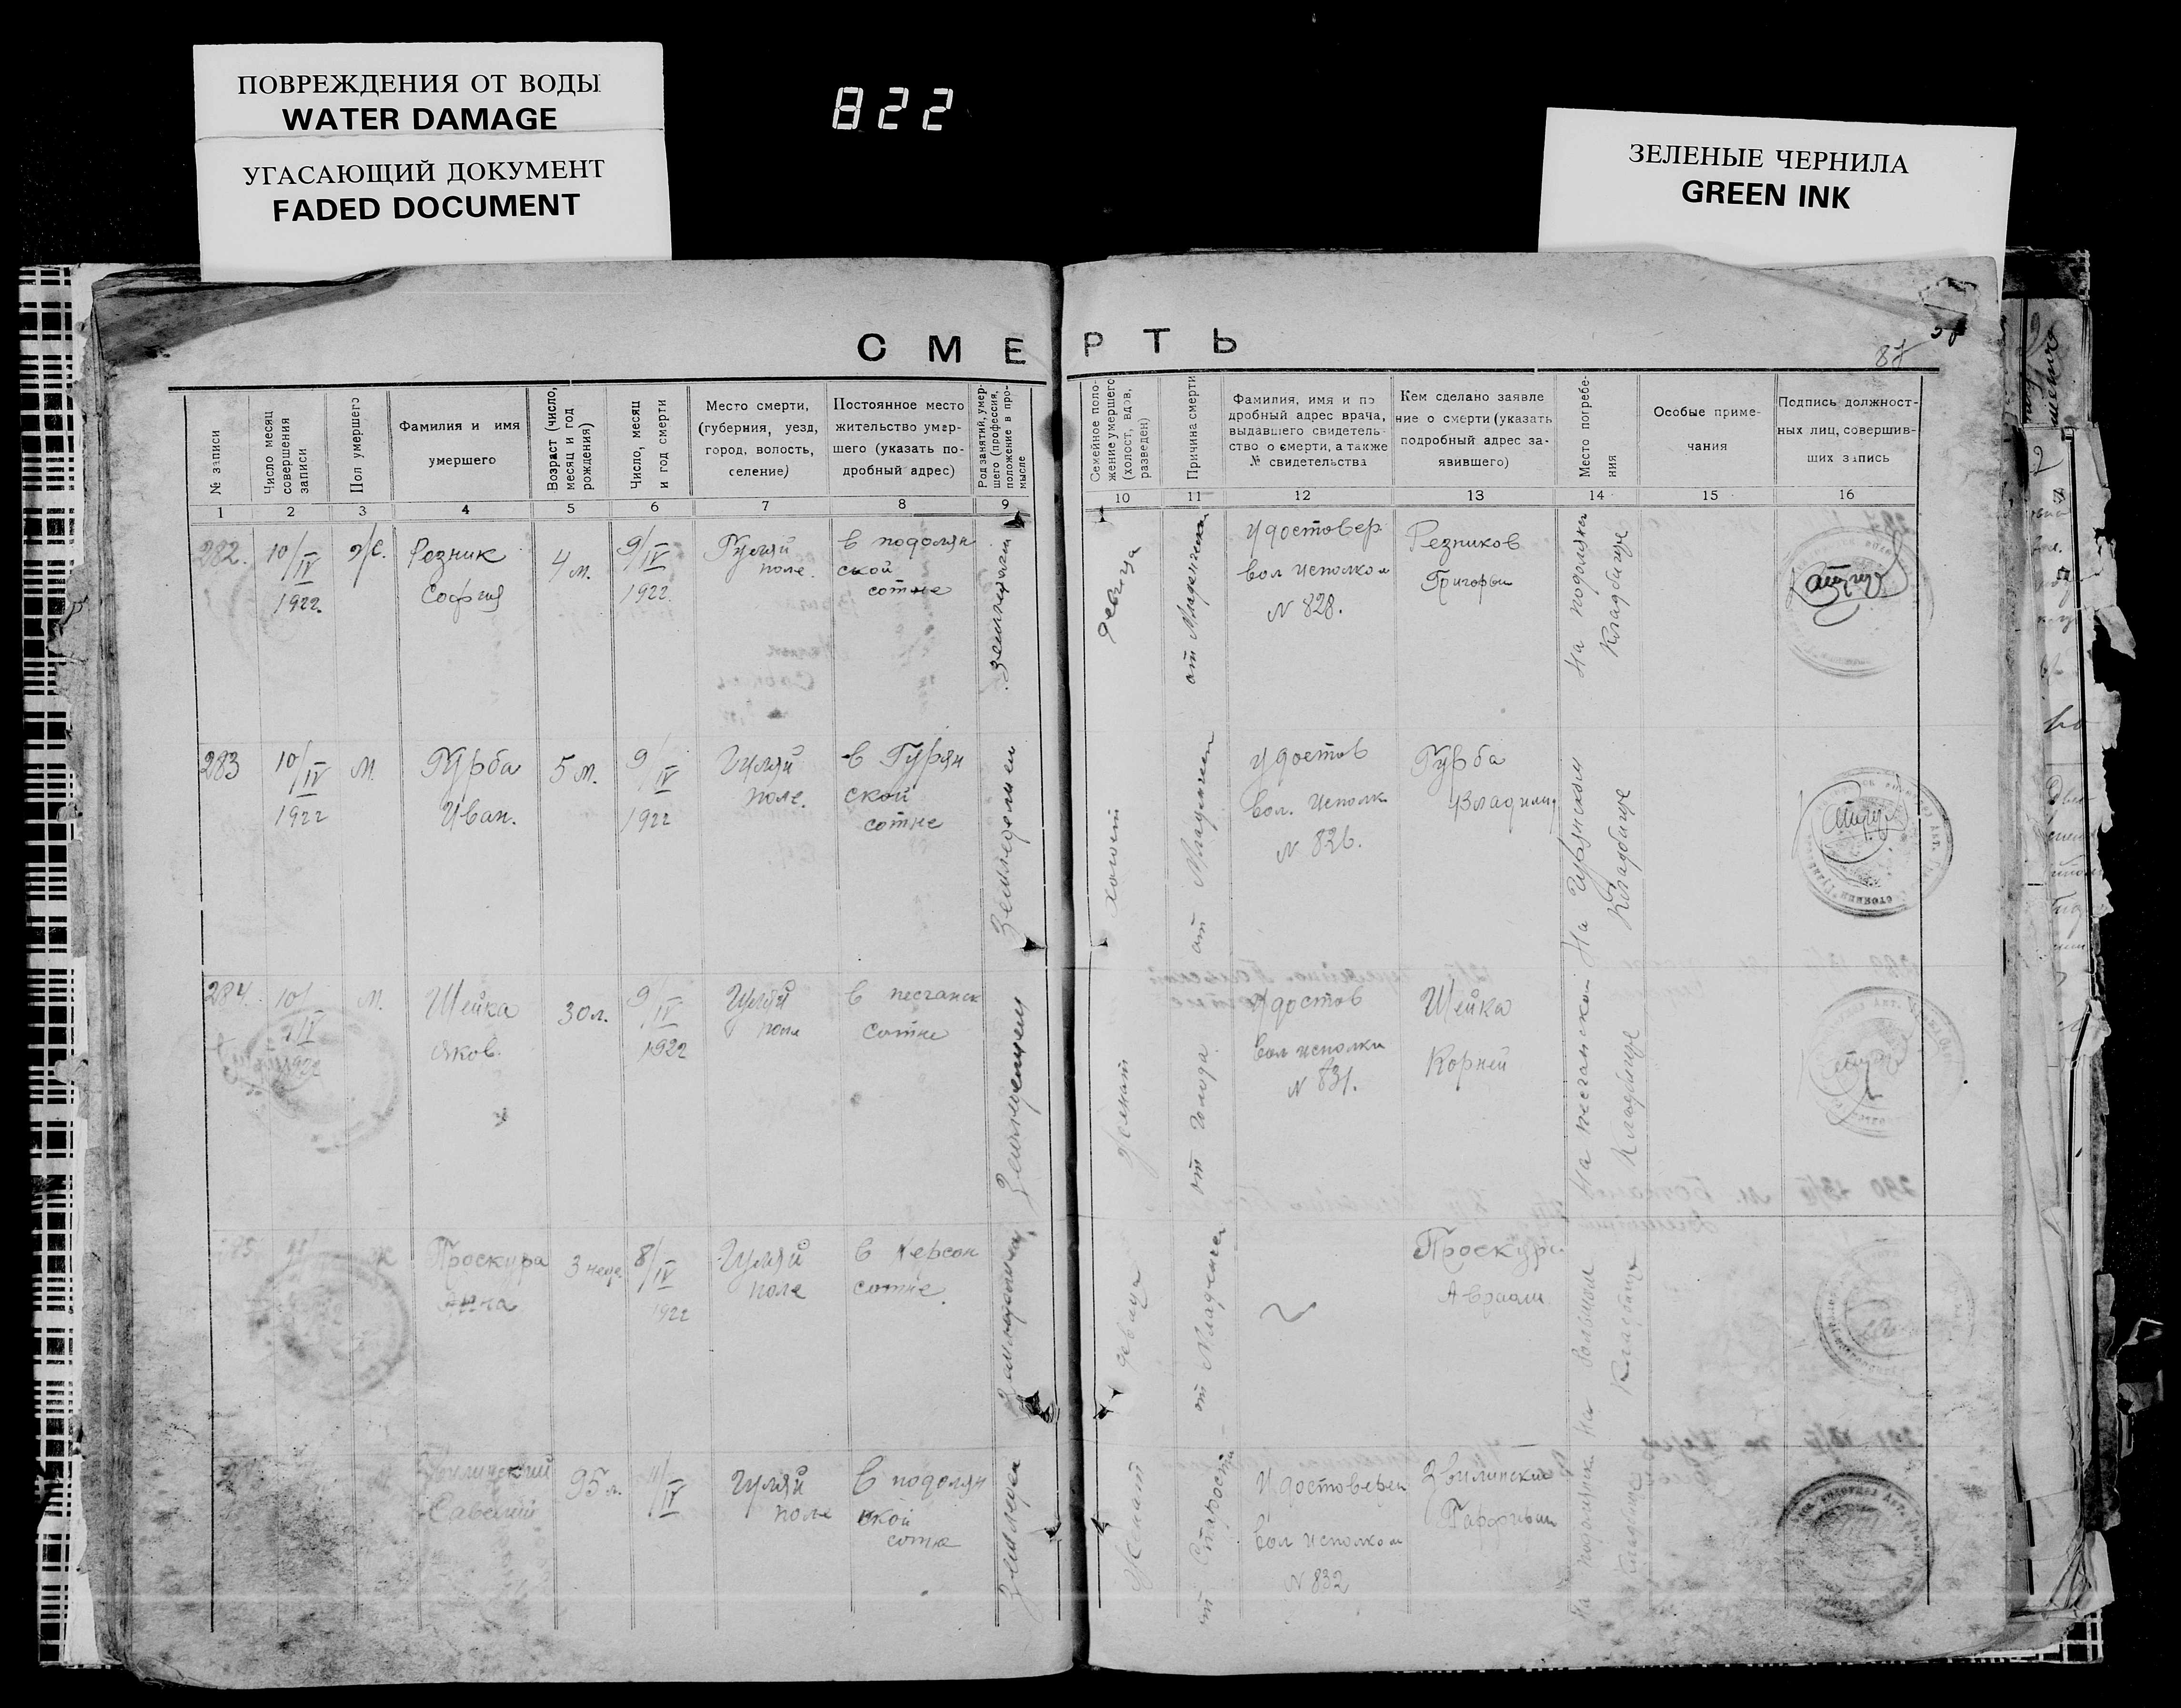 ПОВРЕЖДЕНИЯ ОТ ВОДЫ
WATER DAMAGE
УГАСАЮЩИЙ ДОКУМЕНТ
FADED DOCUMENT
822
ЗЕЛЕНЫЕ ЧЕРНИЛА
GREEN INK
СМЕРТЬ
№ записи
Число месяц
совершения
записи
Пол умершего
Фамилия и имя
умершего
Возраст (число,
месяц и год
рождения)
Число, месяц
и год смерти
Место смерти,
(губерния, уезд,
город, волость,
селение)
Постоянное место
жительство умер-
шего (указать по-
дробный адрес)
Род занятий, умер-
шего (профессия,
положение в про-
мысле
Семейное поло-
жение умершего
(холост, вдов,
разведен)
Причина смерти
Фамилия, имя и по
дробный адрес врача,
выдавшего свидетель
ство о смерти, а также
№ свидетельства
Кем сделано заявле
ние о смерти (указать
подробный адрес за-
явившего)
Место погребе-
ния
Особые приме-
чания
Подпись должност-
ных лиц, совершив-
ших запись
1 2 3 4 5 6 7 8 9 10 11 12 13 14 15 16
282.
10/IV
1922.
ж.
Резник
София
4 м.
9/IV
1922
Гуляй
поле.
в подолян
ской
сотне
девица
от Младенчества
Удостовер
вол исполком
N 828.
Резников
Григорий
На подолянск
Кладбище
283
10/IV
1922
м.
Гурба
Иван.
5 м.
9/IV
1922
Гуляй
поле.
в Гурян
ской
сотне
Земледелец
холост
от Младенч
Удостов
вол. исполк
N 826.
Гурба
Владимир
На Гурянском
Кладбище
284.
10/IV
1922
м.
Шейка
Яков.
30 л.
9/IV
1922
Гуляй
поле
в песчанск
сотне
Земледелец
Женат
от Голода
Удостов
вол исполки
N 831.
Шейка
Корней
На песчанском
Кладбище
ж
Проскура
Анна
3 неде
8/IV
1922
Гуляй
поле
в Херсон
сотне
девица
от Младенч
Проскура
Авраам
На
Кладбище
Савелий
95 л.
11/IV
Гуляй
поле
в подолян
ской
сотне
Женат
от Старости
Удостоверен
вол исполком
N 832
Звилинский
На подолянск
Кладбище